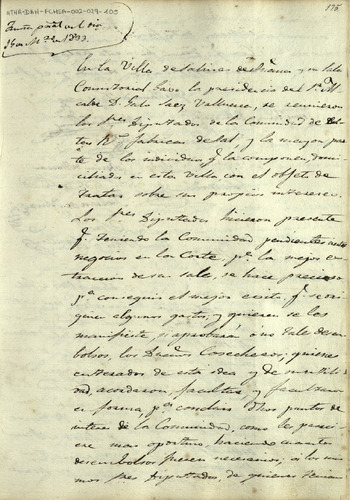 ATHA-DAH-FLMSA-002-029-105
176
Junta gral en el dia
15 de Mzo de 1833.
En la Villa de Salinas de Añana y en Sala
Consistorial bajo la presidencia del Sr. Al
calde D. Galo Saez Valluerca, se reunieron
los Sres. Diputados de la Comunidad de
Rs. fabricas de Sal, y la mayor par
te de los individuos q. la componen, domi
ciliados en esta Villa con el objeto de
tratar sobre sus propios intereses.
Los Sres. Diputados hicieron presente
q. teniendo la Comunidad pendientes
negocios en la Corte, pa. la mejor ex
traccion de sus sales, se hace preciso
pa. conseguir el mejor exito q. se ori
ginen algunos gastos, y quieren se les
manifieste si aprobarán o no tales desem
bolsos, los Dueños Cosecheros; quienes
enterados de esta idea y de su utili
dad, acordaron facultar y facultaron
en forma, pa. concluir dhos puntos de
interes de la Comunidad, como les pare
ciere mas oportuno, haciendo cuantos
desembolsos fueren necesarios, a los mis
mos Sres. Diputados, de quienes tienen